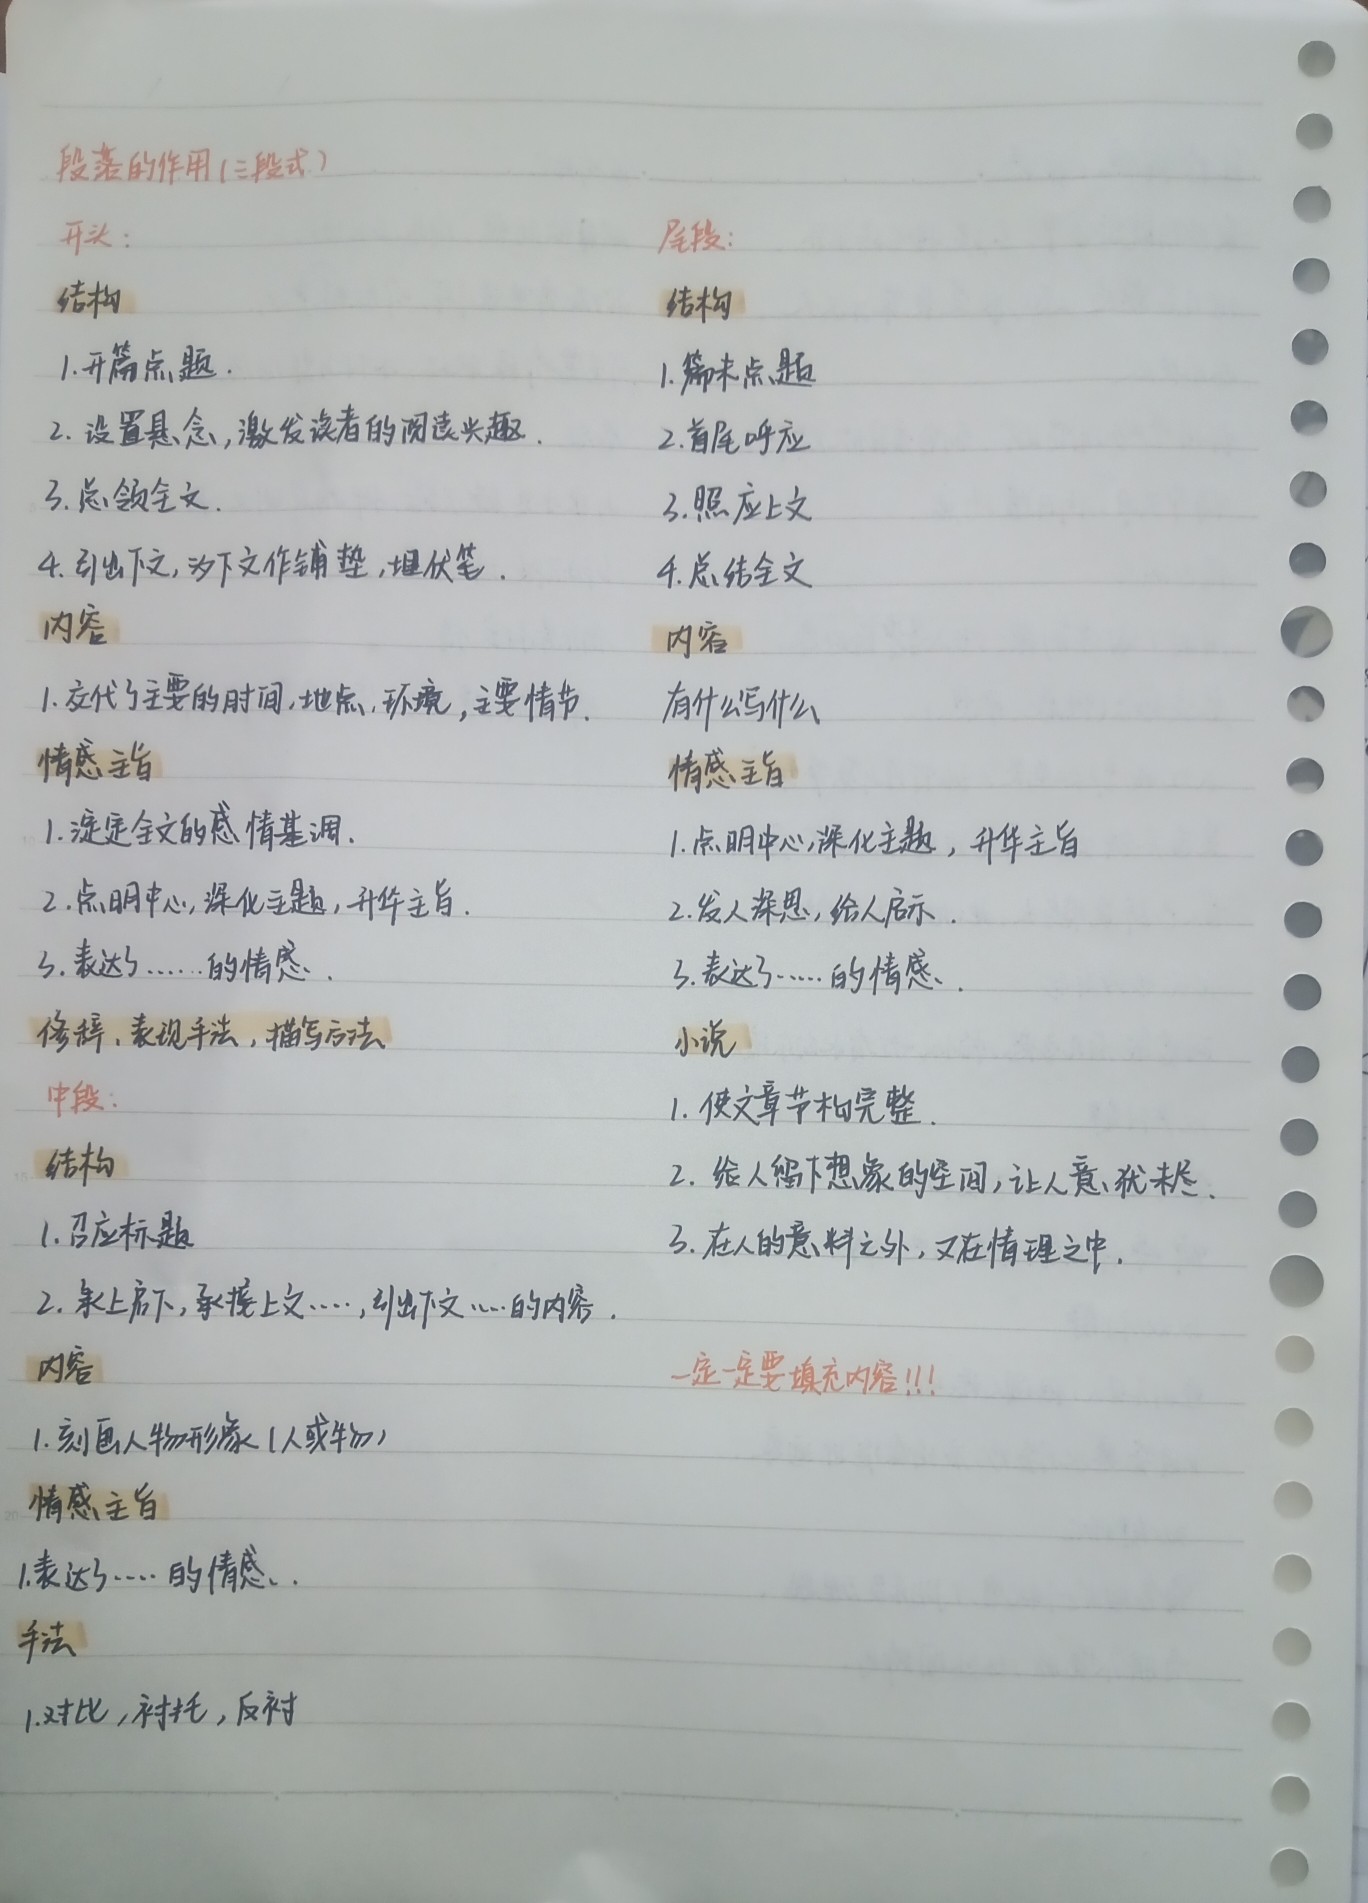 段落的作用(三段式)
开头:
结构
1.开篇点题.
2.设置悬念,激发读者的阅读兴趣.
3.总领全文.
4.引出下文,为下文作铺垫,埋伏笔.
内容
1.交代了主要的时间,地点,环境,主要情节.
情感主旨
1.淀定全文的感情基调.
2.点明中心,深化主题,升华主旨.
3.表达了……的情感.
修辞,表现手法,描写方法
中段:
结构
1.召应标题
2.承上启下,承接上文……,引出下文……的内容.
内容
1.刻画人物形象(人或物)
情感主旨
1.表达了……的情感.
手法
1.对比,衬托,反衬
尾段:
结构
1.篇末点题
2.首尾呼应
3.照应上文
4.总结全文
内容
有什么写什么
情感主旨
1.点明中心,深化主题,升华主旨
2.发人深思,给人启示.
3.表达了……的情感.
小说
1.使文章节构完整.
2.给人留下想象的空间,让人意犹未尽.
3.在人的意料之外,又在情理之中.
一定一定要填充内容!!!